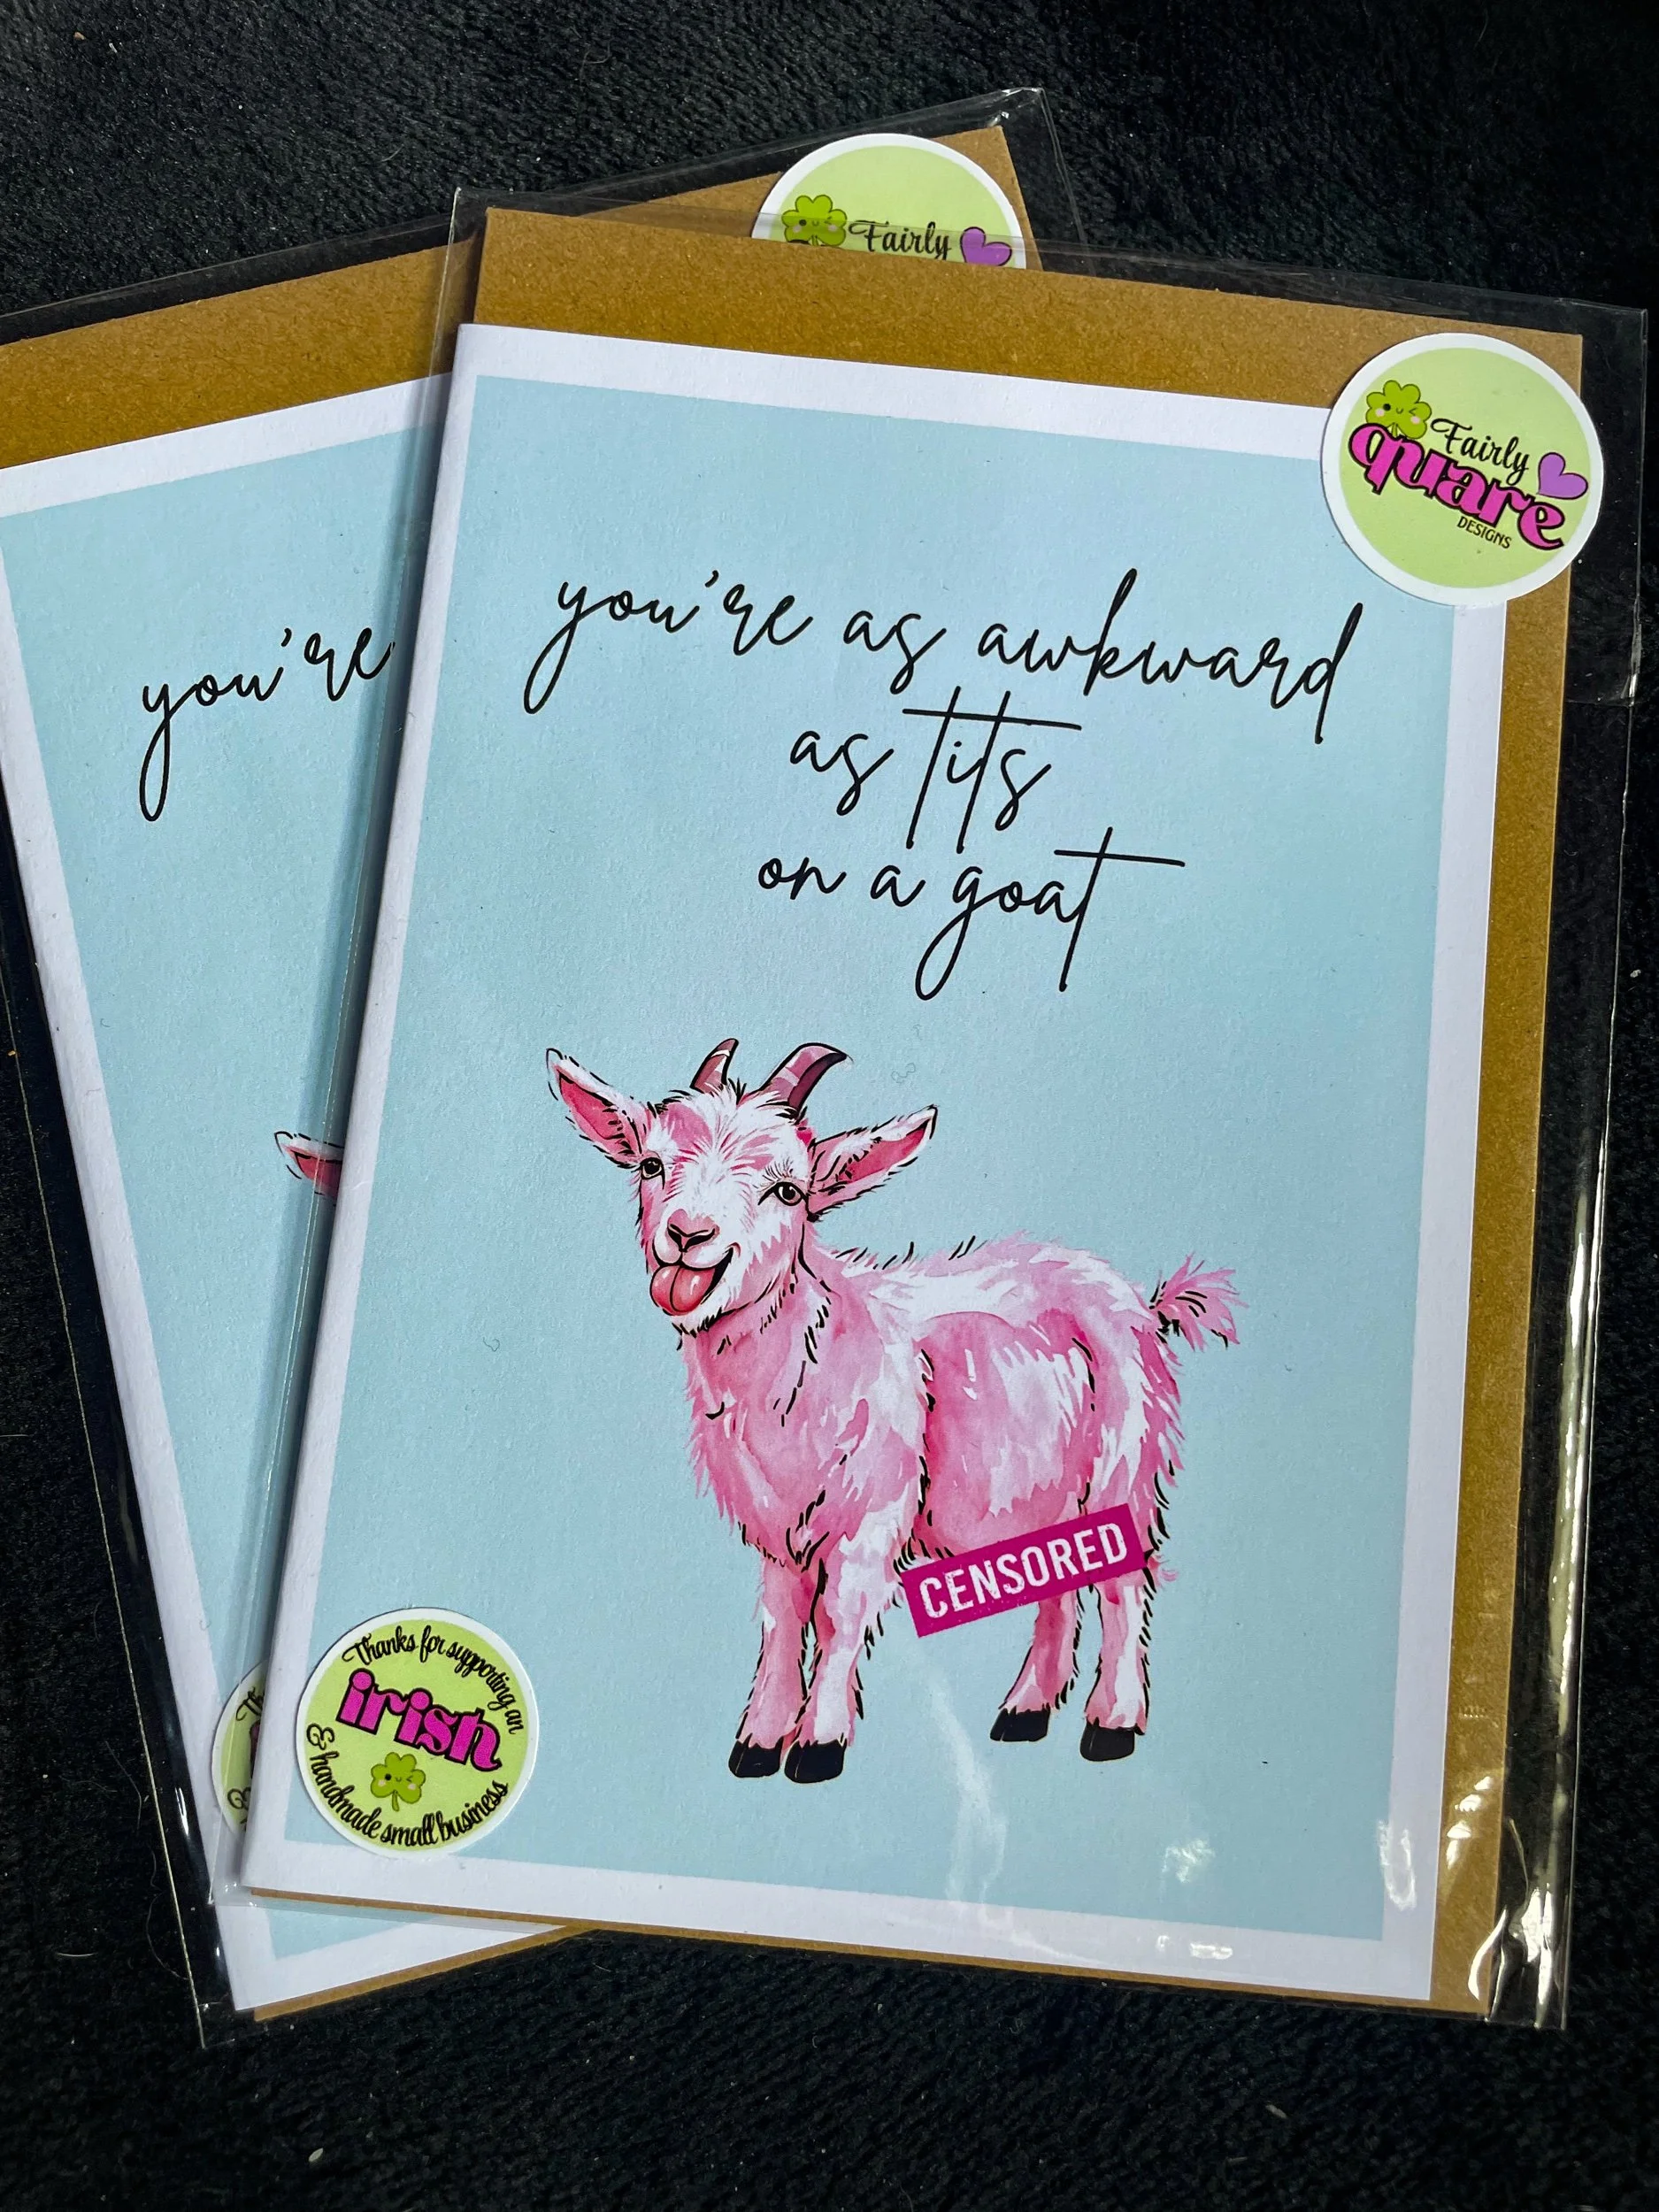 Fairly
Fairly
quare
DESIGNS
you're as awkward
as tits
on a goat
you're
CENSORED
Thanks for supporting an
irish
& handmade small business